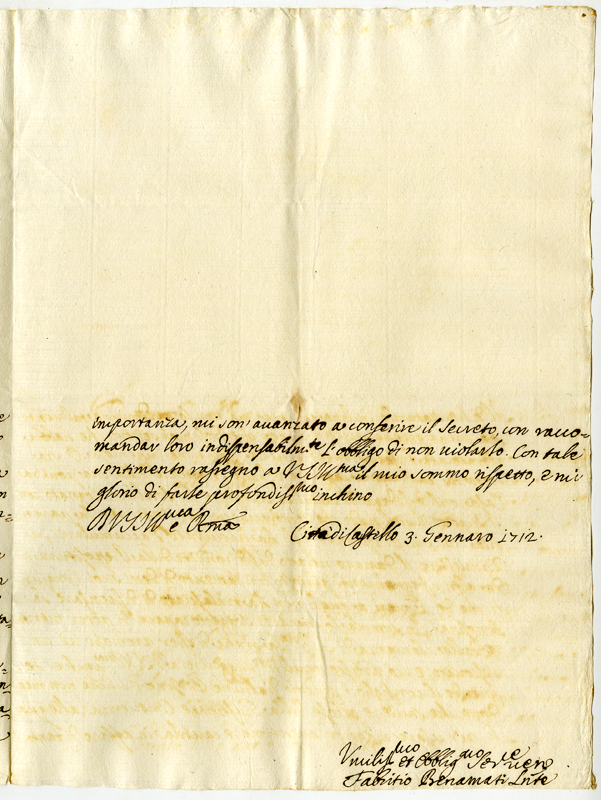 importanza, mi son' avanzato a conferire il secreto, con racco=
mandar loro indispensabilm.te l'obbligo di non violarlo. Con tale
sentimento rassegno a V.S. Ill.ma il mio sommo rispetto, e mi
glorio di farle profondiss.mo inchino
D V S Ill.ma e R.ma
Città di Castello 3. Gennaro 1712.
Vmiliss.mo et obblig.mo Ser.re vero
Fabritio Benamati